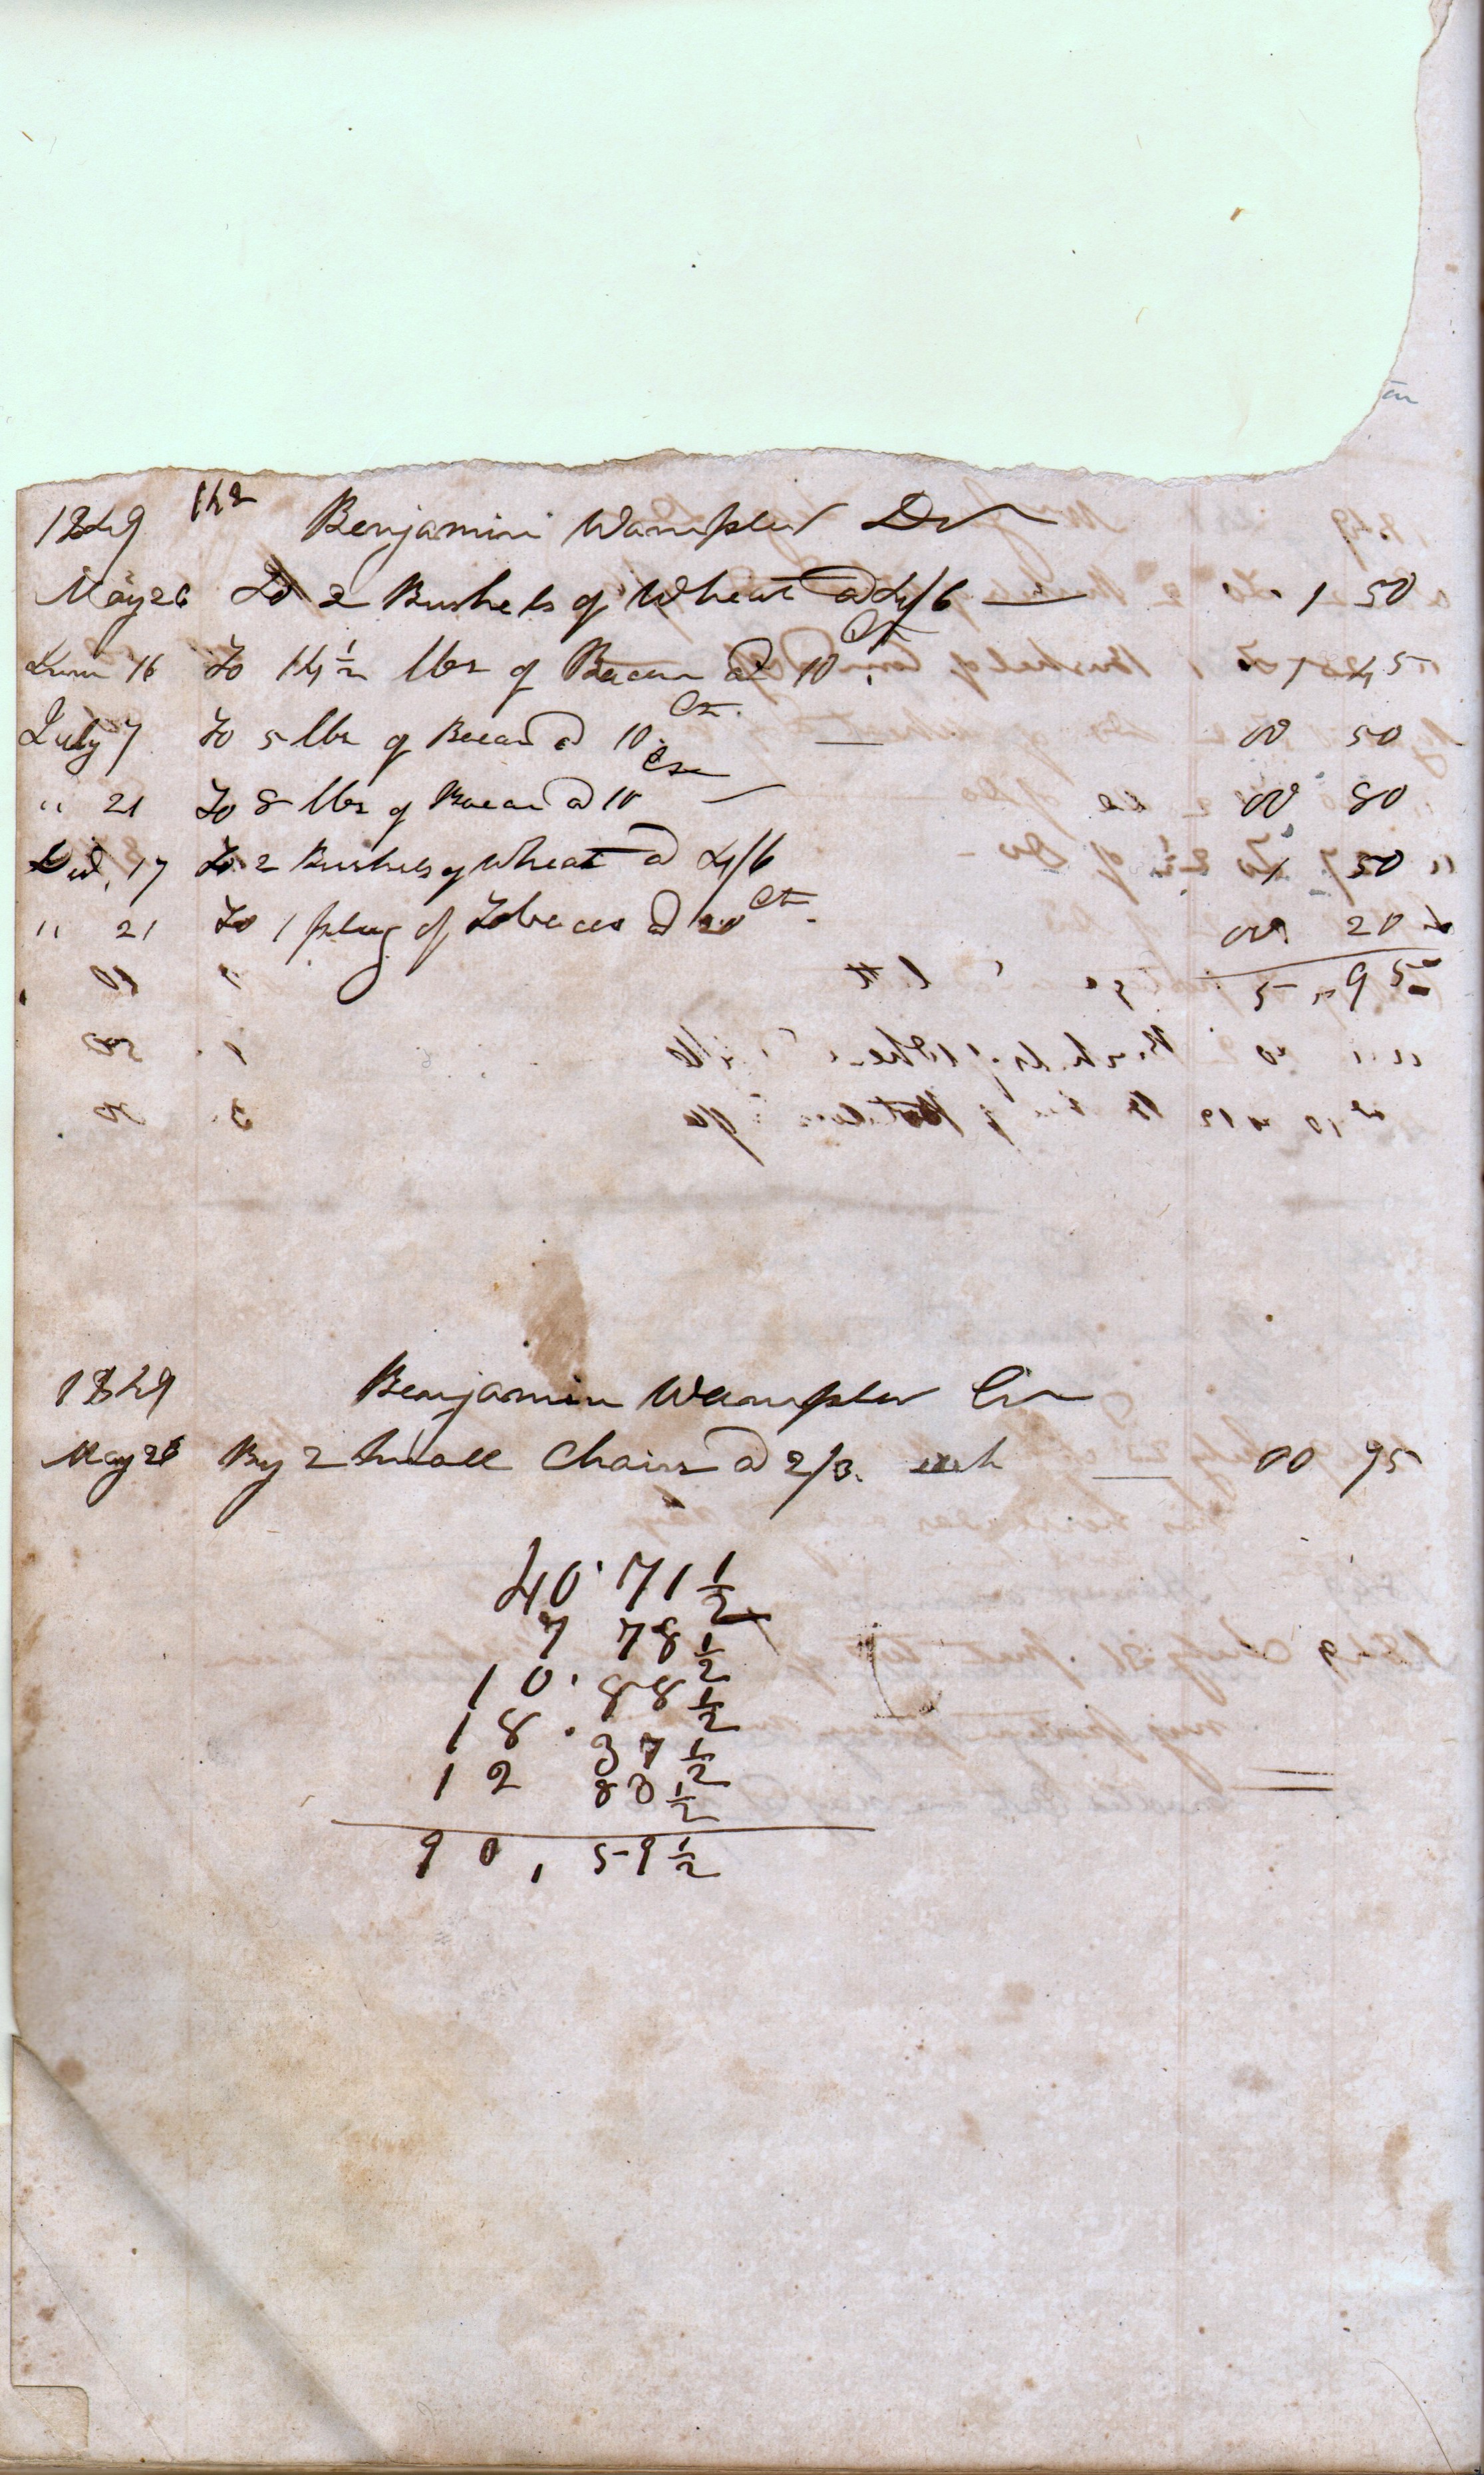 1849 142 Benjamin Wampler Dr
May 26 To 2 Bushels of Wheat @ 4/6 — 1 50
June 16 To 14 1/2 lbs of Bacon @ 10 Cts. 1 45
July 7 To 5 lbs of Bacon @ 10 Cts. — 00 50
" 21 To 8 lbs of Bacon @ 10 Cts — 00 80
17 To 2 Bushels of Wheat @ 4/6 1 50
" 21 To 1 plug of Tobacco @ 20 Cts. 00 20
5 95
1849 Benjamin Wampler Cr
May 26 By 2 Small Chairs @ 2/3. each — 00 75
40.71 1/2
7 78 1/2
10.88 1/2
18.37 1/2
12 83 1/2
90,59 1/2